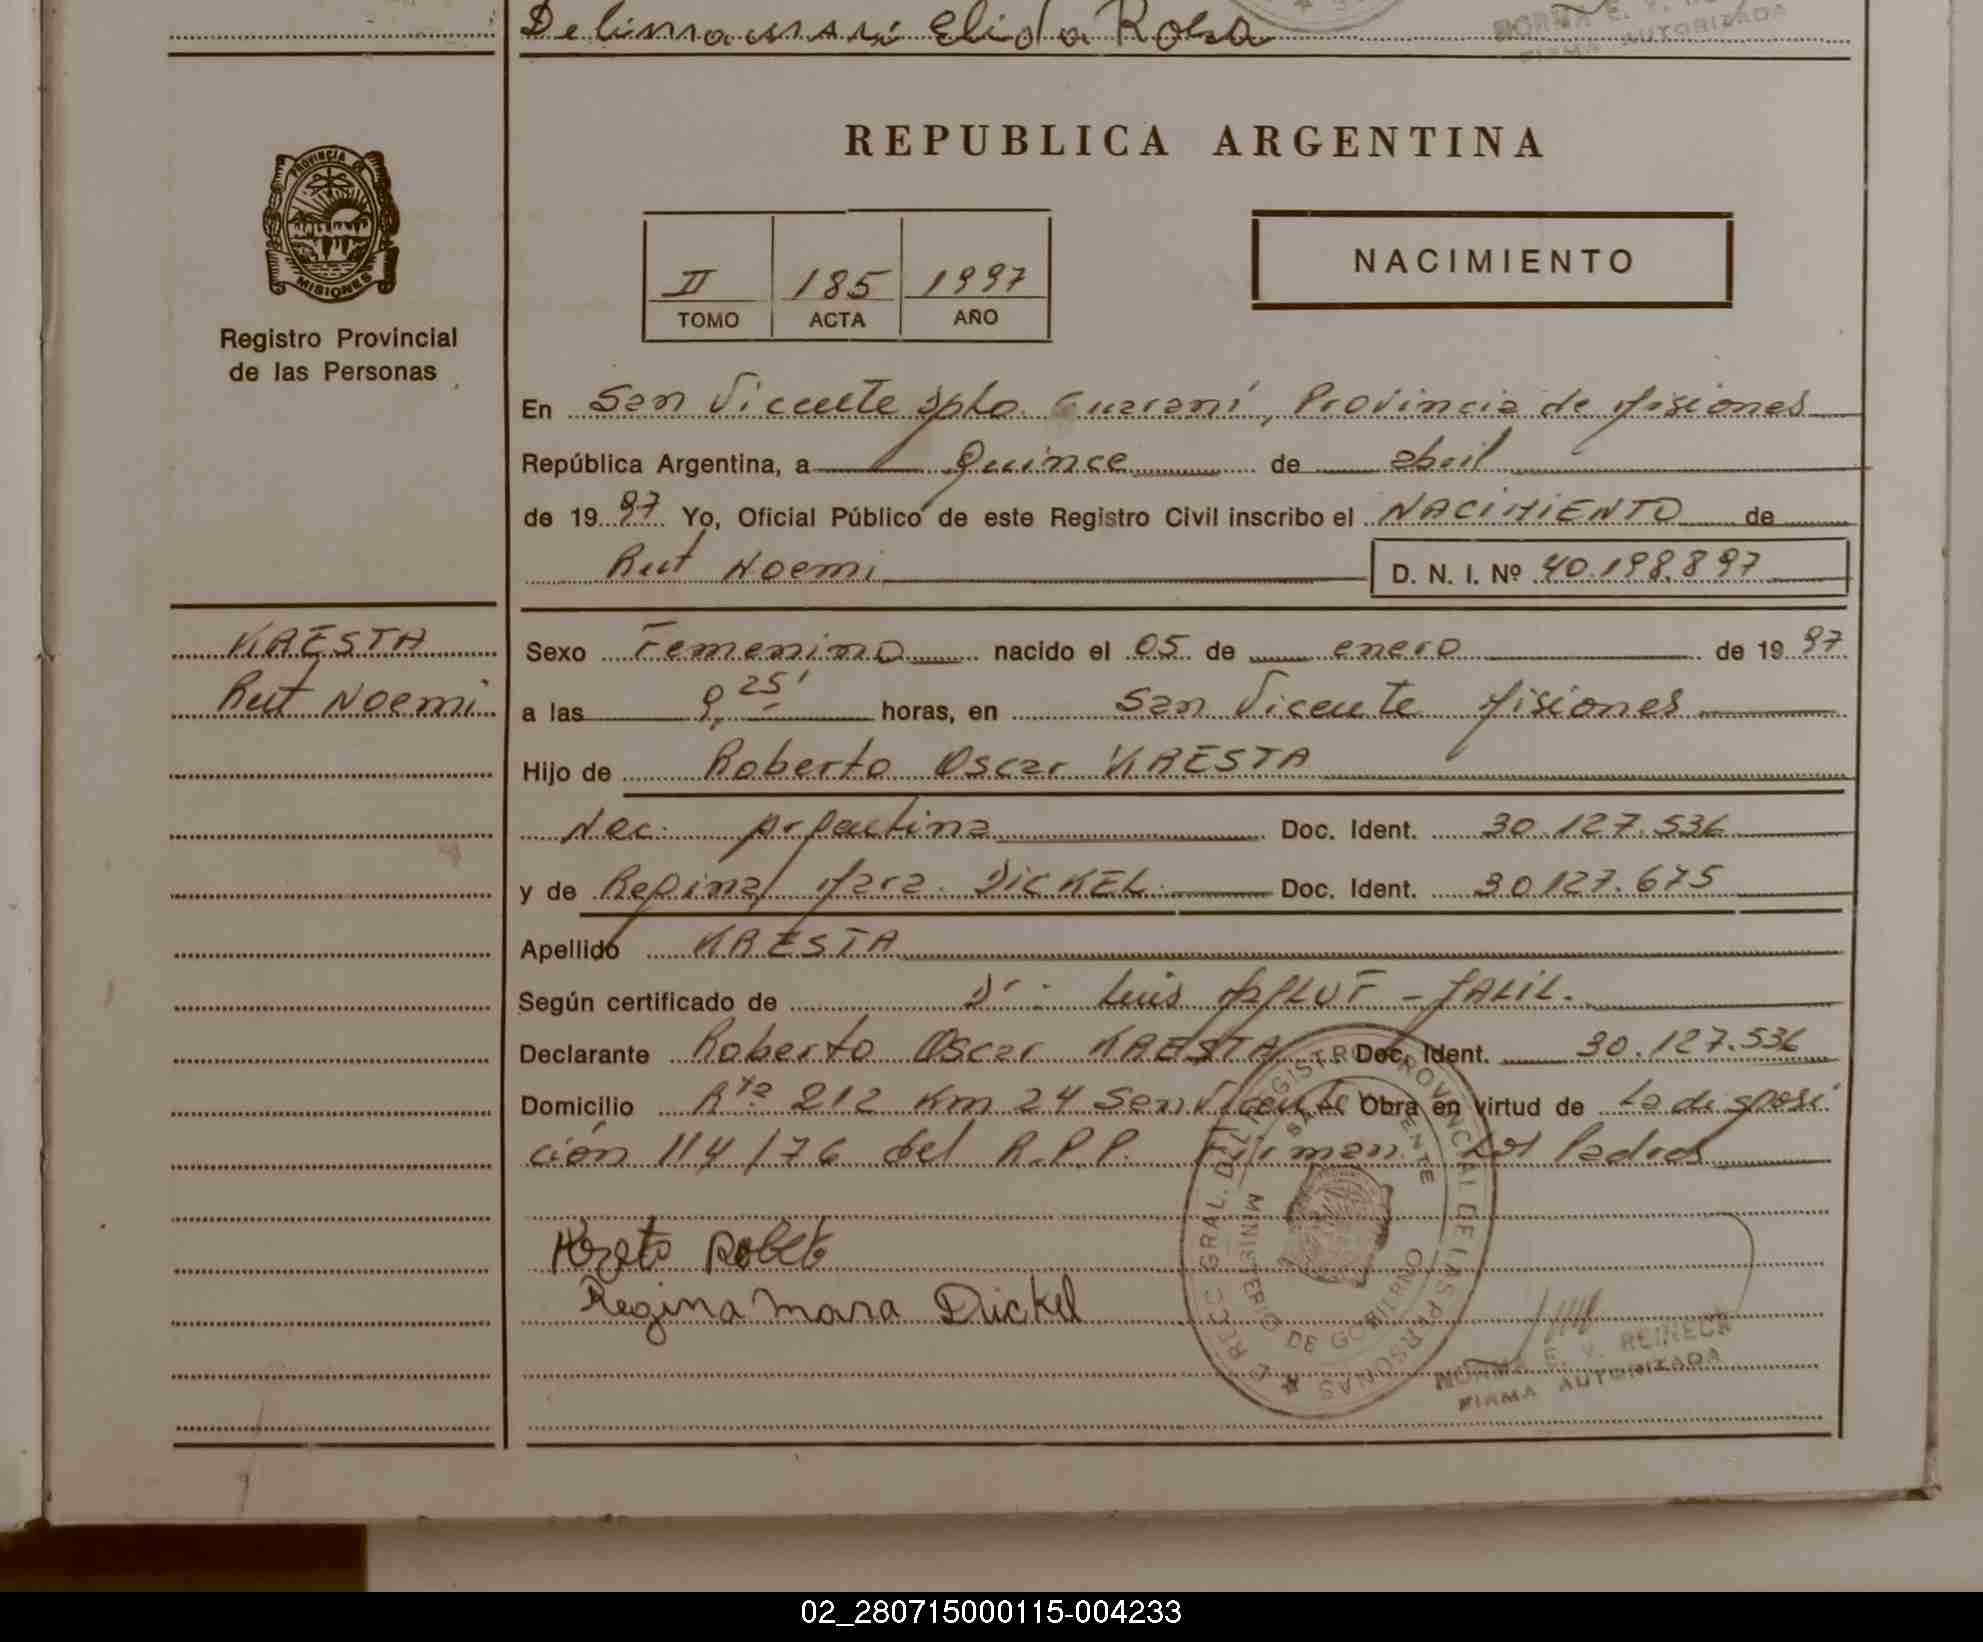 Delimaman Elida Rosa
NORMA E. V. RE
FIRMA AUTORIZADA
REPUBLICA ARGENTINA
PROVINCIA DE
MISIONES
Registro Provincial
de las Personas
II 185 1997
TOMO ACTA AÑO
NACIMIENTO
En San Vicente Dpto. Guaraní, Provincia de Misiones
República Argentina, a Quince de abril
de 1997 Yo, Oficial Público de este Registro Civil inscribo el NACIMIENTO de
Rut Noemi D. N. I. Nº 40.198.897
KRESTA
Rut Noemi
Sexo Femenino nacido el 05 de enero de 1997
a las 9,25' horas, en San Vicente Misiones
Hijo de Roberto Oscar KRESTA
Nac. Argentina Doc. Ident. 30.127.536
y de Regina Mara DICKEL Doc. Ident. 30127.675
Apellido KRESTA
Según certificado de Dr: Luis - JALIL.
Declarante Roberto Oscar KRESTA Doc. Ident. 30.127.536
Domicilio Rta 212 Km 24 San Vicente Obra en virtud de La disposi
ción 114/76 del R.P.P. Firman Los Padres
Roberto
Regina Mara Dickel
DIRECC. GRAL. DEL REGISTRO PROVINCIAL DE LAS PERSONAS
SAN VICENTE
MINISTERIO DE GOBIERNO
NORMA E. V. REINECK
FIRMA AUTORIZADA
02_280715000115-004233